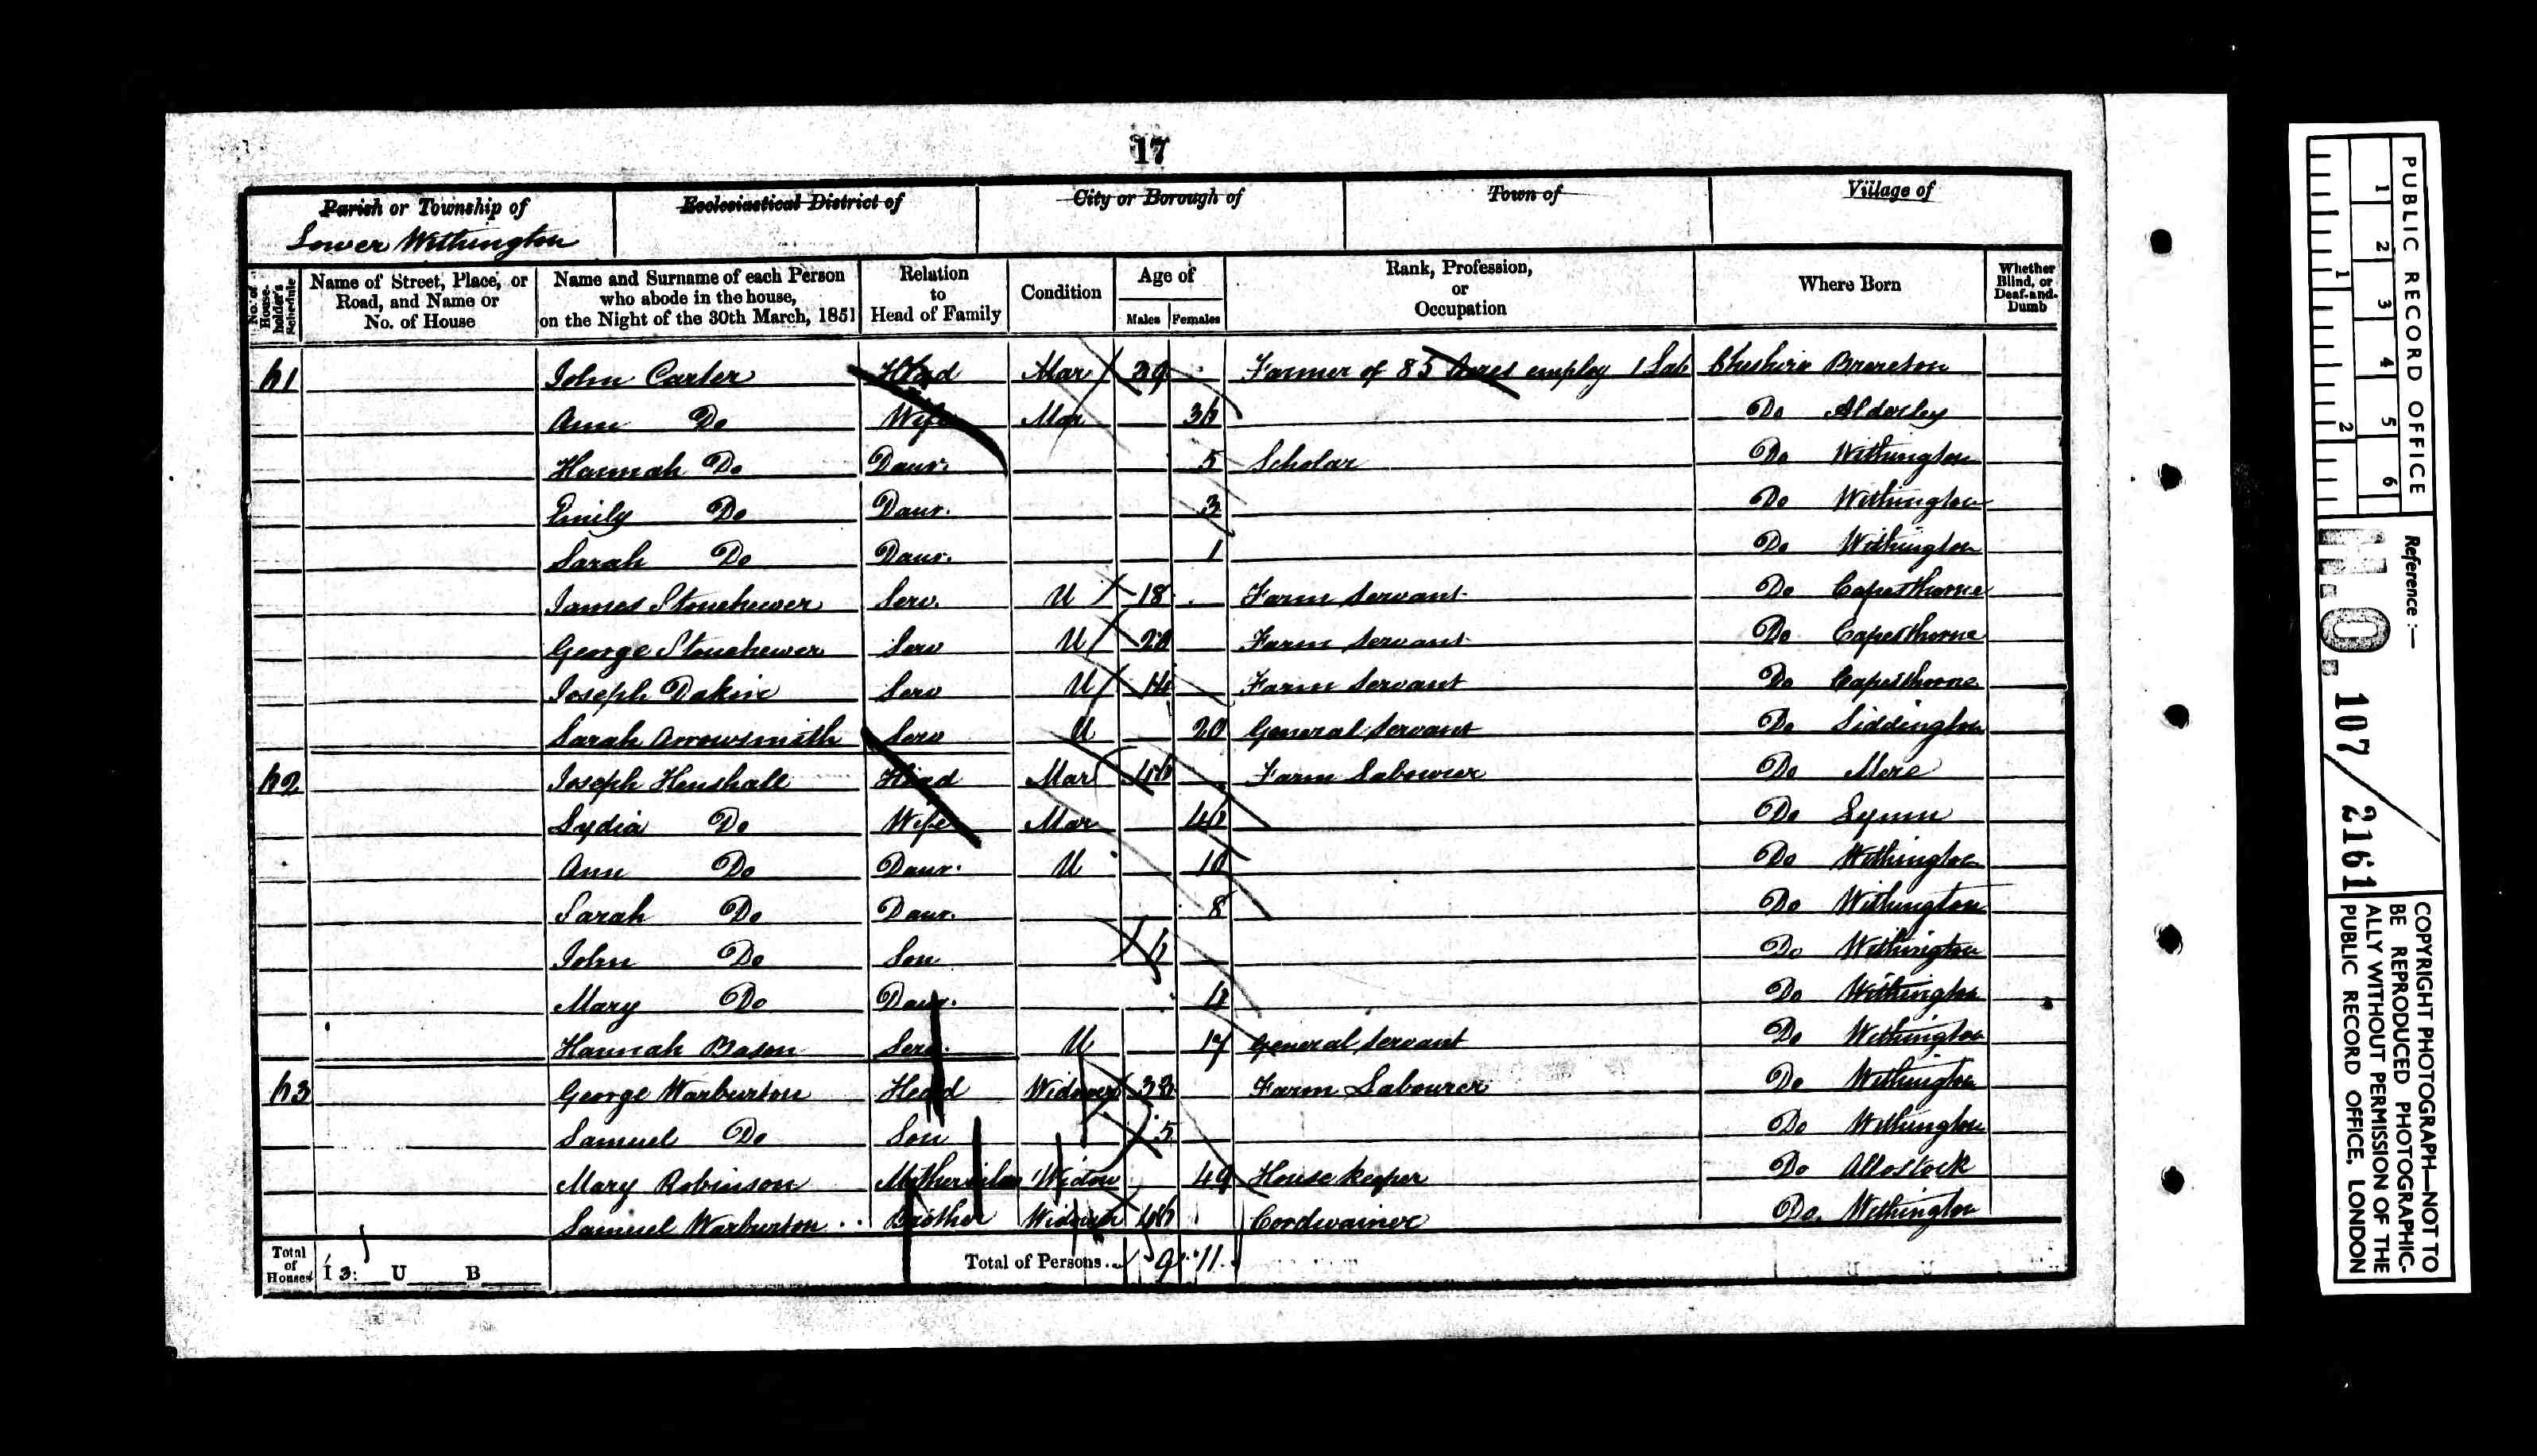 17
Parish or Township of
Ecclesiastical District of
City or Borough of
Town of
Village of
Lower Withington
No. of House-holder's Schedule
Name of Street, Place, or Road, and Name or No. of House
Name and Surname of each Person who abode in the house, on the Night of the 30th March, 1851
Relation to Head of Family
Condition
Age of
Males
Females
Rank, Profession, or Occupation
Where Born
Whether Blind, or Deaf-and-Dumb
61 John Carter Head Mar 39 Farmer of 85 Acres employ 1 Lab Cheshire Brereton
Ann Do Wife Mar 36 Do Alderley
Hannah Do Daur. 5 Scholar Do Withington
Emily Do Daur. 3 Do Withington
Sarah Do Daur. 1 Do Withington
James Stonehewer Serv. U 18 Farm Servant Do Capesthorne
George Stonehewer Serv U 20 Farm Servant Do Capesthorne
Joseph Dakin Serv U 14 Farm Servant Do Capesthorne
Sarah Arrowsmith Serv U 20 General Servant Do Siddington
62 Joseph Henshall Head Mar 46 Farm Labourer Do Mere
Lydia Do Wife Mar Do Lymm
Ann Do Daur. U 10 Do Withington
Sarah Do Daur. 8 Do Withington
John Do Son 6 Do Withington
Mary Do Daur. Do Withington
Hannah Bason Serv. U 17 General Servant Do Withington
63 George Warburton Head Widower 38 Farm Labourer Do Withington
Samuel Do Son 5 Do Withington
Mary Robinson Mother in law Widow 49 House keeper Do Allostock
Samuel Warburton Brother Widower 46 Cordwainer Do. Withington
Total of Houses I 3 U B Total of Persons 9 11
PUBLIC RECORD OFFICE
1 2 3 4 5 6
1 2
Reference :—
H.O. 107 / 2161
COPYRIGHT PHOTOGRAPH—NOT TO
BE REPRODUCED PHOTOGRAPHIC-
ALLY WITHOUT PERMISSION OF THE
PUBLIC RECORD OFFICE, LONDON